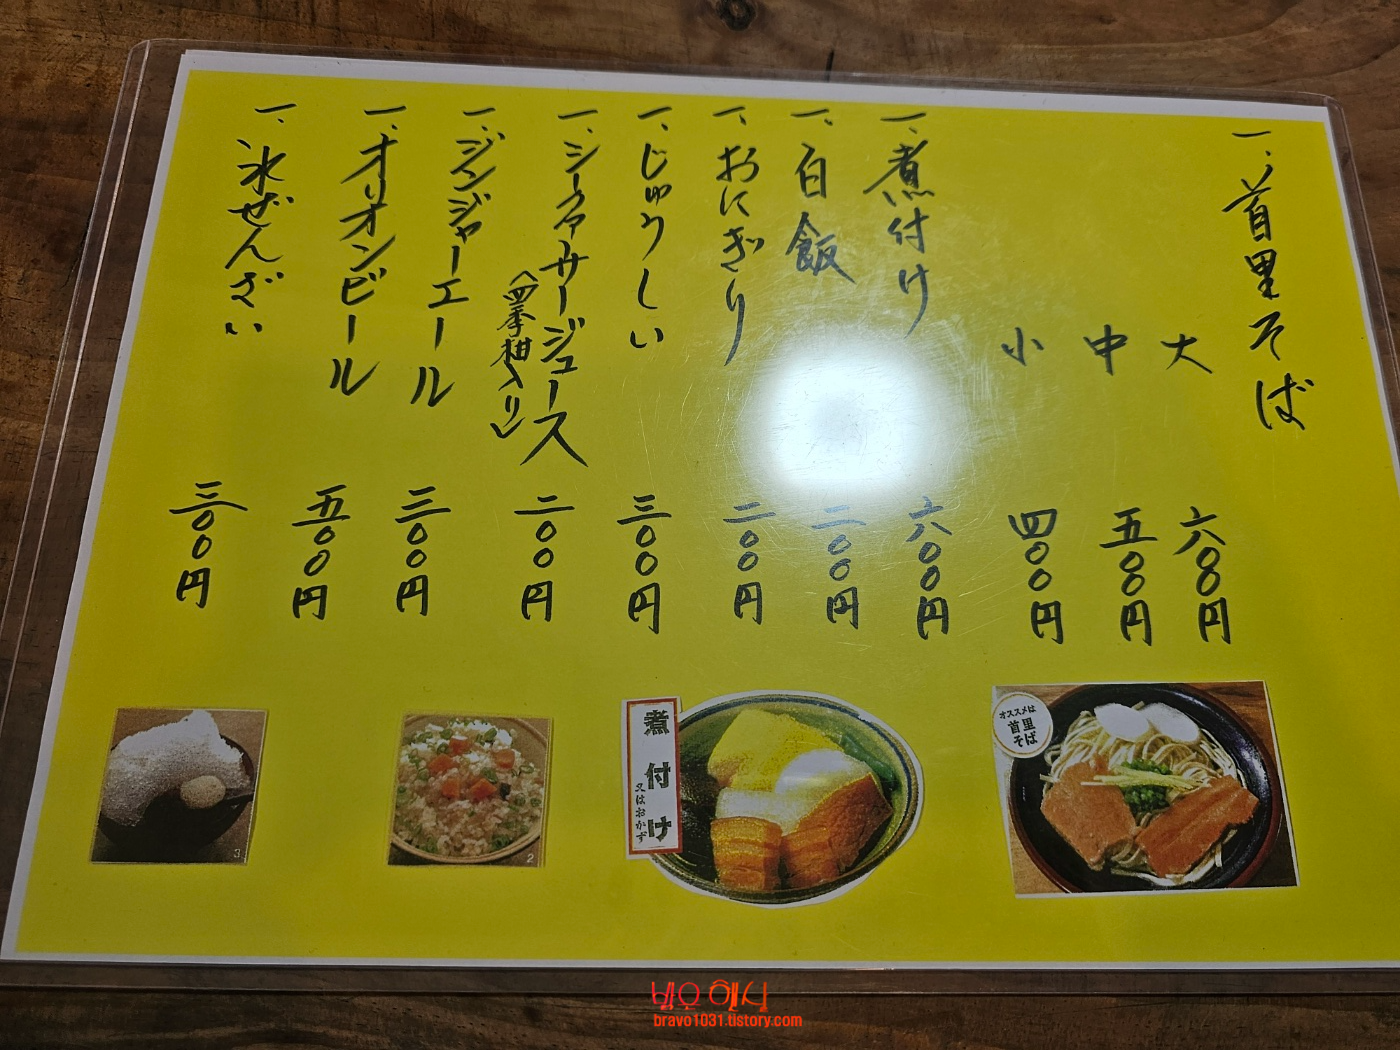 一、首里そば
大 六〇〇円
中 五〇〇円
小 四〇〇円
一、煮付け 六〇〇円
一、白飯 二〇〇円
一、おにぎり 二〇〇円
一、じゅうしい 三〇〇円
一、シークァーサージュース 二〇〇円
(四季柑入り)
一、ジンジャーエール 三〇〇円
一、オリオンビール 五〇〇円
一、氷ぜんざい 三〇〇円
オススメは
首里
そば
煮付け
又はおかず
2
3
bravo1031.tistory.com